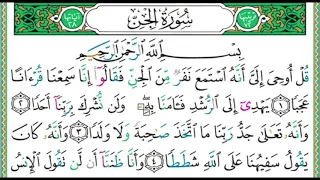 سُورَةُ الجِنِّ
بِسْمِ اللَّهِ الرَّحْمَٰنِ الرَّحِيمِ
قُلْ أُوحِيَ إِلَىَّ أَنَّهُ اسْتَمَعَ نَفَرٌ مِّنَ الْجِنِّ فَقَالُوٓا إِنَّا سَمِعْنَا قُرْءَانًا
عَجَبًا ١ يَهْدِىٓ إِلَى الرُّشْدِ فَـَٔامَنَّا بِهِۦ وَلَن نُّشْرِكَ بِرَبِّنَآ أَحَدًا ٢
وَأَنَّهُۥ تَعَٰلَىٰ جَدُّ رَبِّنَا مَا اتَّخَذَ صَٰحِبَةً وَلَا وَلَدًا ٣ وَأَنَّهُۥ كَانَ
يَقُولُ سَفِيهُنَا عَلَى اللَّهِ شَطَطًا ٤ وَأَنَّا ظَنَنَّآ أَن لَّن تَقُولَ الْإِنسُ